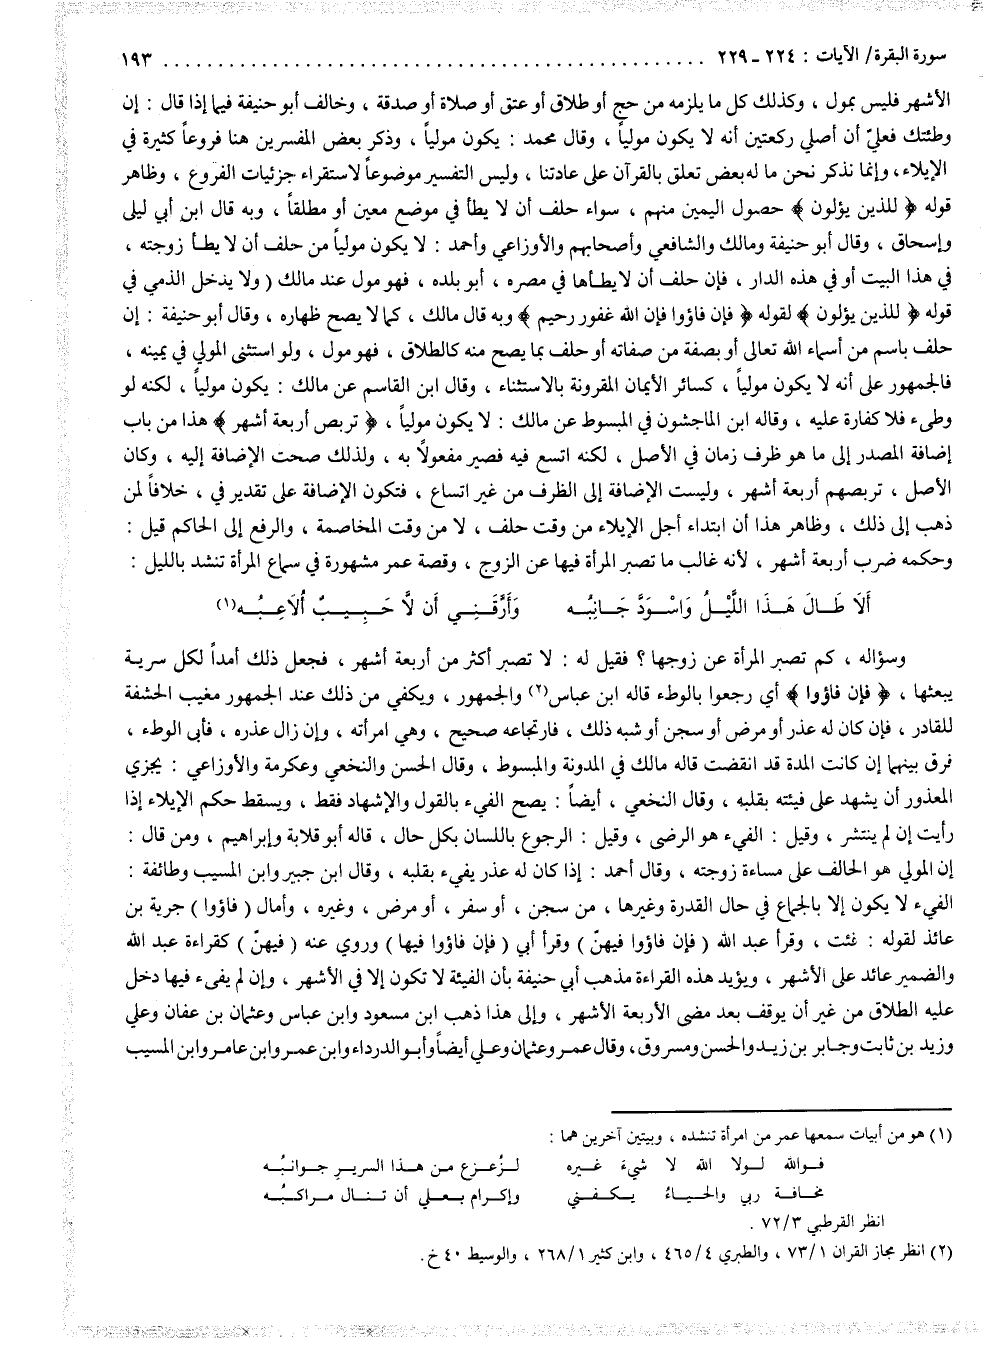 سورة البقرة/ الآيات : ٢٢٤ ـ ٢٢٩ ........................................................ ١٩٣
الأشهر فليس بمول ، وكذلك كل ما يلزمه من حج أو طلاق أو عتق أو صلاة أو صدقة ، وخالف أبو حنيفة فيما إذا قال : إن
وطئتك فعليّ أن أصلي ركعتين أنه لا يكون مولياً ، وقال محمد : يكون مولياً ، وذكر بعض المفسرين هنا فروعاً كثيرة في
الإيلاء ، وإنما نذكر نحن ما له بعض تعلق بالقرآن على عادتنا ، وليس التفسير موضوعاً لاستقراء جزئيات الفروع ، وظاهر
قوله ﴿ للذين يؤلون ﴾ حصول اليمين منهم ، سواء حلف أن لا يطأ في موضع معين أو مطلقاً ، وبه قال ابن أبي ليلى
وإسحاق ، وقال أبو حنيفة ومالك والشافعي وأصحابهم والأوزاعي وأحمد : لا يكون مولياً من حلف أن لا يطأ زوجته ،
في هذا البيت أو في هذه الدار ، فإن حلف أن لا يطأها في مصره ، أبو بلده ، فهو مول عند مالك ( ولا يدخل الذمي في
قوله ﴿ للذين يؤلون ﴾ لقوله ﴿ فإن فاؤوا فإن الله غفور رحيم ﴾ وبه قال مالك ، كما لا يصح ظهاره ، وقال أبو حنيفة : إن
حلف باسم من أسماء الله تعالى أو بصفة من صفاته أو حلف بما يصح منه كالطلاق ، فهو مول ، ولو استثنى المولي في يمينه ،
فالجمهور على أنه لا يكون مولياً ، كسائر الأيمان المقرونة بالاستثناء ، وقال ابن القاسم عن مالك : يكون مولياً ، لكنه لو
وطىء فلا كفارة عليه ، وقاله ابن الماجشون في المبسوط عن مالك : لا يكون مولياً ، ﴿ تربص أربعة أشهر ﴾ هذا من باب
إضافة المصدر إلى ما هو ظرف زمان في الأصل ، لكنه اتسع فيه فصير مفعولاً به ، ولذلك صحت الإضافة إليه ، وكان
الأصل ، تربصهم أربعة أشهر ، وليست الإضافة إلى الظرف من غير اتساع ، فتكون الإضافة على تقدير في ، خلافاً لمن
ذهب إلى ذلك ، وظاهر هذا أن ابتداء أجل الإيلاء من وقت حلف ، لا من وقت المخاصمة ، والرفع إلى الحاكم قيل :
وحكمه ضرب أربعة أشهر ، لأنه غالب ما تصبر المرأة فيها عن الزوج ، وقصة عمر مشهورة في سماع المرأة تنشد بالليل :
أَلَا طَالَ هَذَا اللَّيْلُ وَاسْوَدَّ جَانِبُه وَأَرَّقَنِي أَن لَّا حَبِيبٌ أُلَاعِبُه(١)
وسؤاله ، كم تصبر المرأة عن زوجها ؟ فقيل له : لا تصبر أكثر من أربعة أشهر ، فجعل ذلك أمداً لكل سرية
يبعثها ، ﴿ فإن فاؤوا ﴾ أي رجعوا بالوطء قاله ابن عباس(٢) والجمهور ، ويكفي من ذلك عند الجمهور مغيب الحشفة
للقادر ، فإن كان له عذر أو مرض أو سجن أو شبه ذلك ، فارتجاعه صحيح ، وهي امرأته ، وإن زال عذره ، فأبى الوطء ،
فرق بينهما إن كانت المدة قد انقضت قاله مالك في المدونة والمبسوط ، وقال الحسن والنخعي وعكرمة والأوزاعي : يجزي
المعذور أن يشهد على فيئته بقلبه ، وقال النخعي ، أيضاً : يصح الفيء بالقول والإشهاد فقط ، ويسقط حكم الإيلاء إذا
رأيت إن لم ينتشر ، وقيل : الفيء هو الرضى ، وقيل : الرجوع باللسان بكل حال ، قاله أبو قلابة وإبراهيم ، ومن قال :
إن المولي هو الحالف على مساءة زوجته ، وقال أحمد : إذا كان له عذر يفيء بقلبه ، وقال ابن جبير وابن المسيب وطائفة :
الفيء لا يكون إلا بالجماع في حال القدرة وغيرها ، من سجن ، أو سفر ، أو مرض ، وغيره ، وأمال ( فاؤوا ) جرية بن
عائذ لقوله : فئت ، وقرأ عبد الله ( فإن فاؤوا فيهنّ ) وقرأ أبي ( فإن فاؤوا فيها ) وروي عنه ( فيهنّ ) كقراءة عبد الله
والضمير عائد على الأشهر ، ويؤيد هذه القراءة مذهب أبي حنيفة بأن الفيئة لا تكون إلا في الأشهر ، وإن لم يفىء فيها دخل
عليه الطلاق من غير أن يوقف بعد مضى الأربعة الأشهر ، وإلى هذا ذهب ابن مسعود وابن عباس وعثمان بن عفان وعلي
وزيد بن ثابت وجابر بن زيد والحسن ومسروق ، وقال عمر وعثمان وعلي أيضاً وأبو الدرداء وابن عمر وابن عامر وابن المسيب
(١) هو من أبيات سمعها عمر من امرأة تنشده ، وبيتين آخرين هما :
فوالله لولا الله لا شيءَ غيره لزُعزع من هذا السرير جوانبُه
مخافة ربي والحياءُ يكفني وإكرام بعلي أن تنال مراكبُه
انظر القرطبي ٧٢/٣ .
(٢) انظر مجاز القران ٧٣/١ ، والطبري ٤٦٥/٤ ، وابن كثير ٢٦٨/١ ، والوسيط ٤٠ خ .